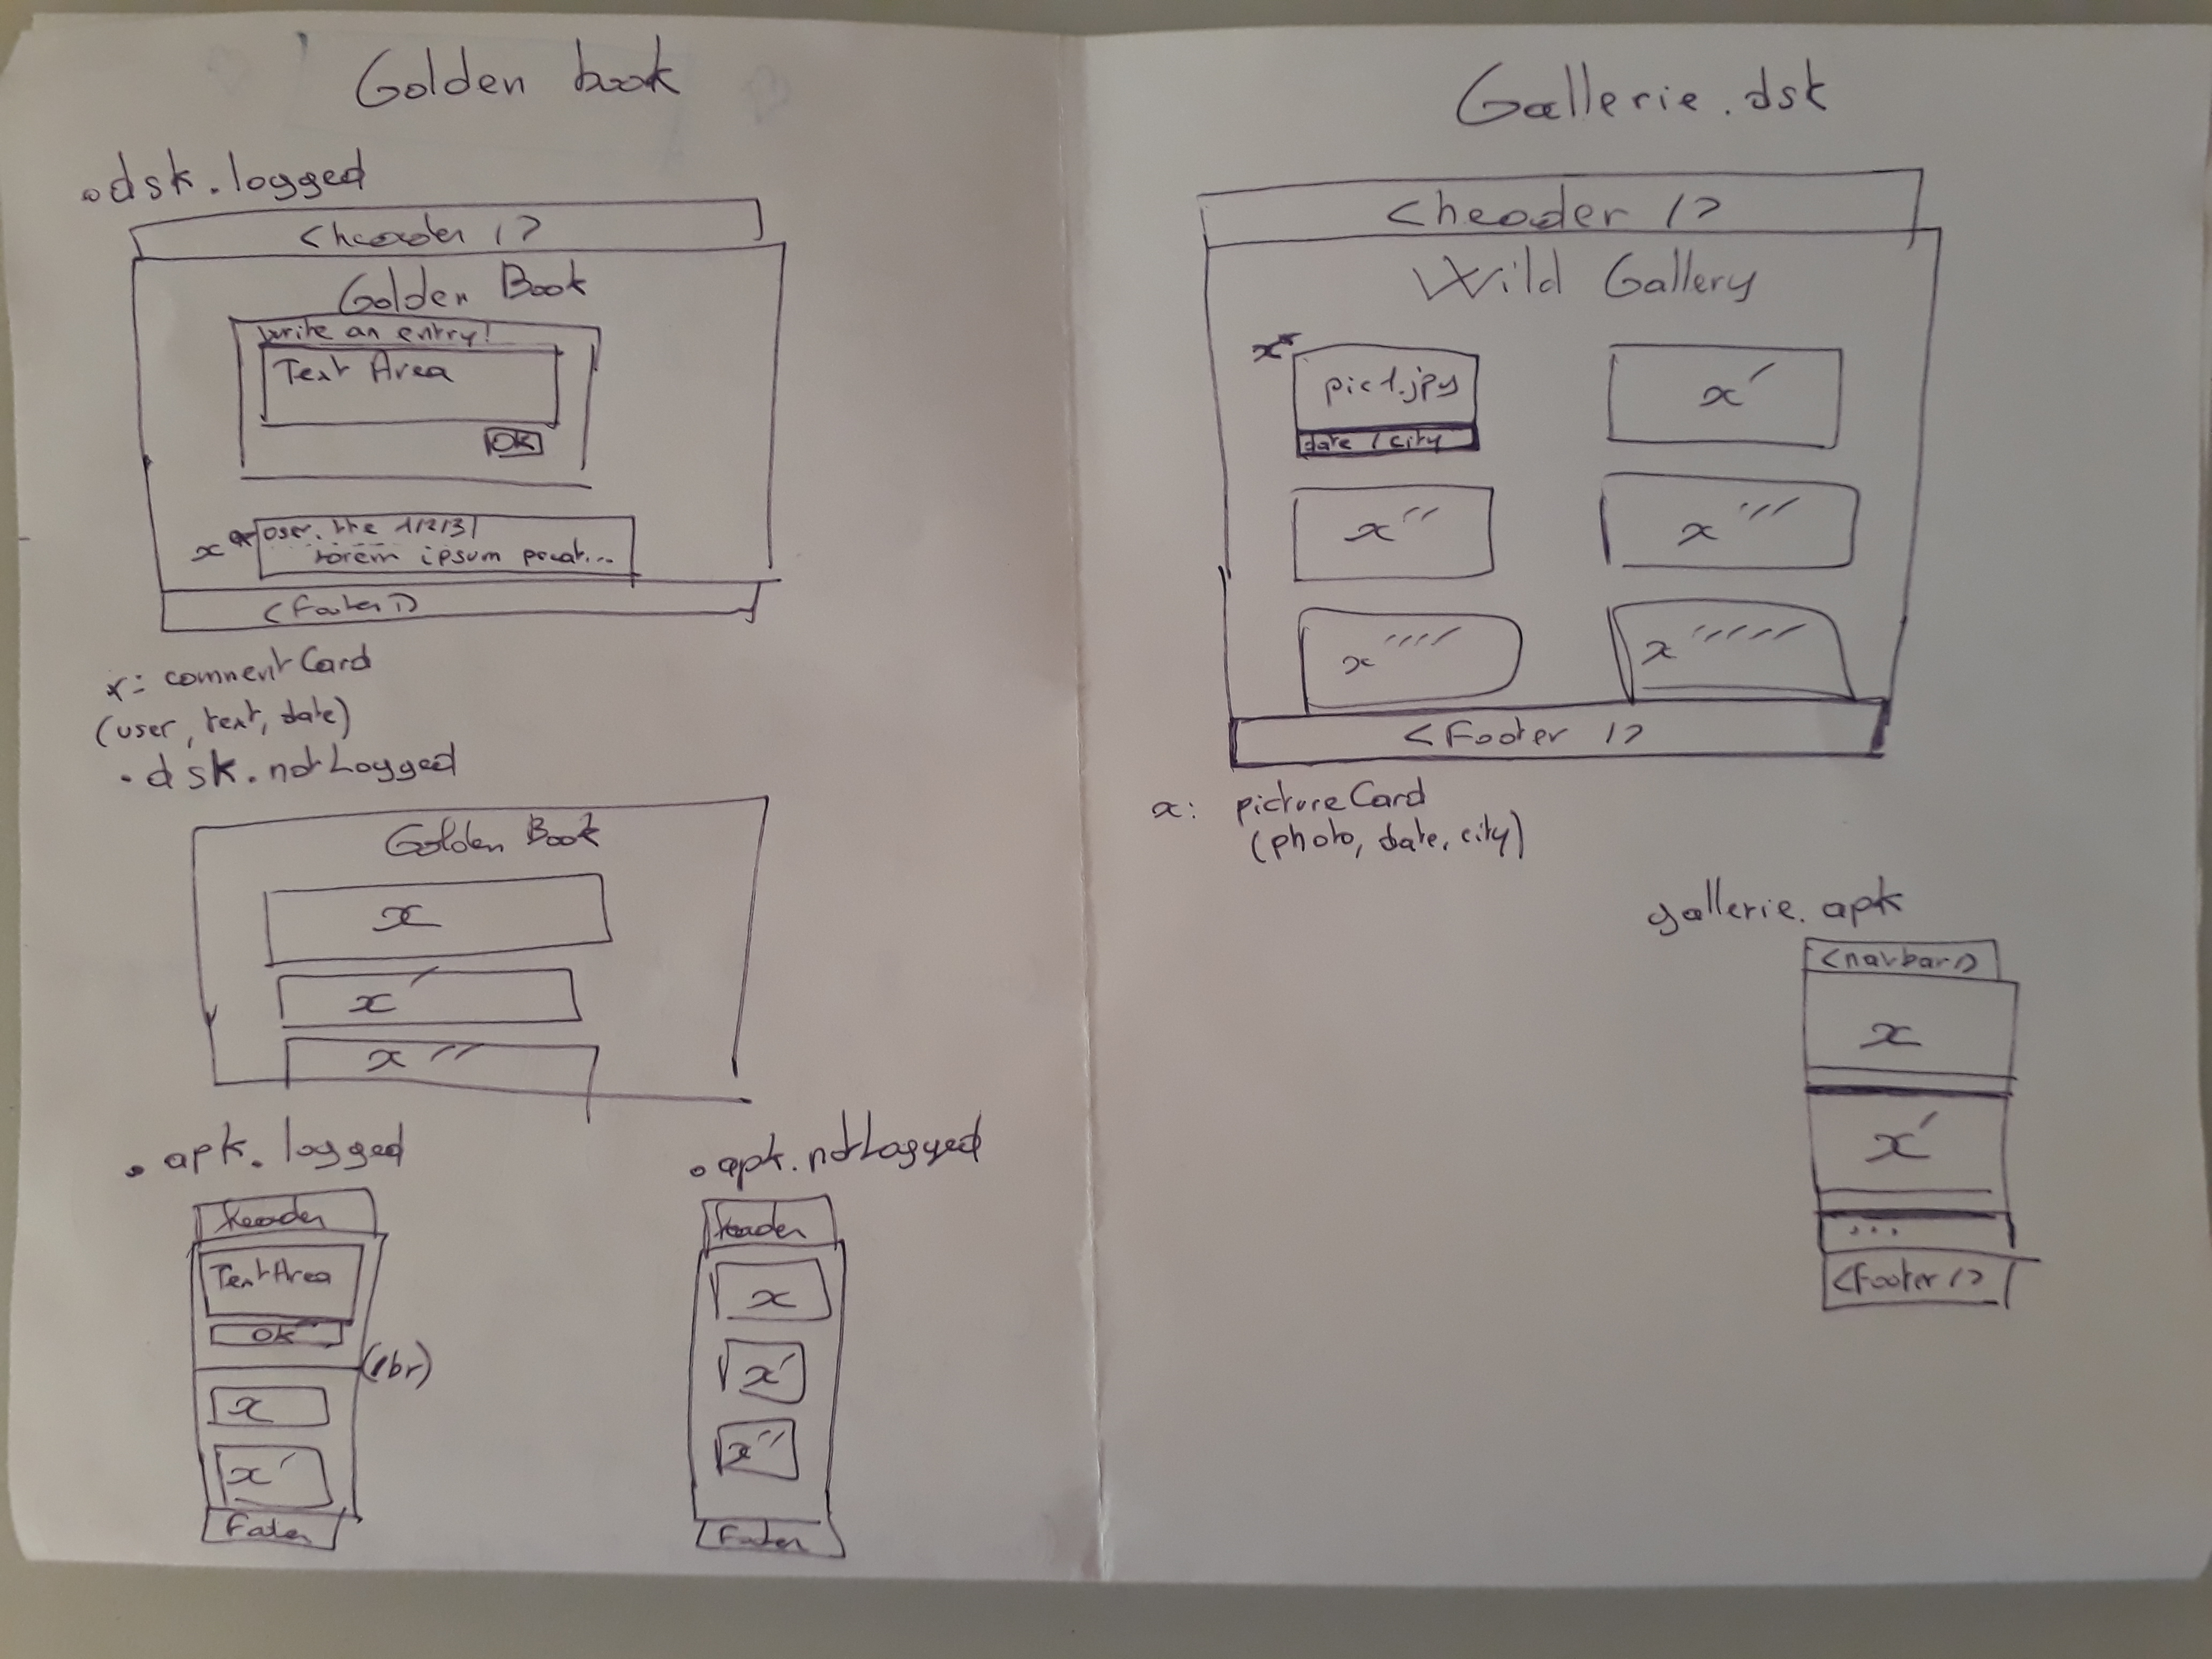 Golden book
.dsk.logged
<header />
Golden Book
Write an entry!
Text Area
OK
x
user, the 1/2/3
lorem ipsum
<Footer />
x: commentCard
(user, text, date)
. dsk.notLogged
Golden Book
x
x'
x''
. apk. logged
header
TextArea
OK
x
x'
Footer
. apk.notLogged
header
x
x'
x''
Footer
Gallerie.dsk
<header />
Wild Gallery
x
pic1.jpg
date / city
x'
x''
x'''
x''''
x'''''
<Footer />
x: pictureCard
(photo, date, city)
gallerie. apk
<navbar />
x
x'
...
<Footer />